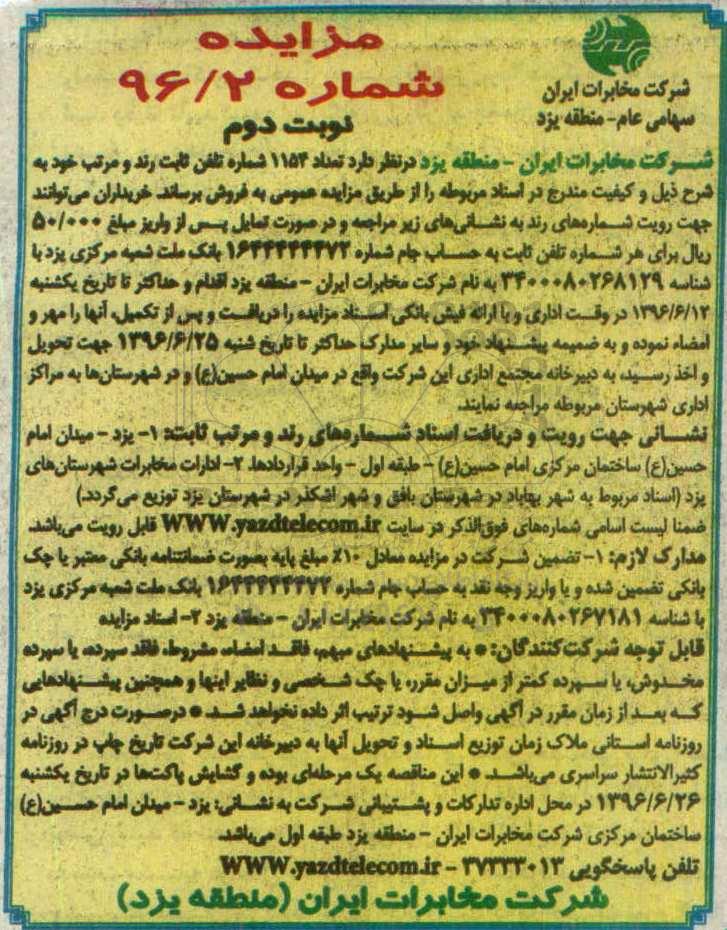 مزایده
شماره ۹۶/۲
نوبت دوم
شرکت مخابرات ایران
سهامی عام- منطقه یزد
شرکت مخابرات ایران - منطقه یزد درنظر دارد تعداد ۱۱۵۴ شماره تلفن ثابت رند و مرتب خود به
شرح ذیل و کیفیت مندرج در اسناد مربوطه را از طریق مزایده عمومی به فروش برساند. خریداران می‌توانند
جهت رویت شماره‌های رند به نشانی‌های زیر مراجعه و در صورت تمایل پس از واریز مبلغ ۵۰/۰۰۰
ریال برای هر شماره تلفن ثابت به حساب جام شماره ۱۶۴۴۴۴۴۴۷۲ بانک ملت شعبه مرکزی یزد با
شناسه ۳۴۰۰۰۸۰۲۶۸۱۲۹ به نام شرکت مخابرات ایران - منطقه یزد اقدام و حداکثر تا تاریخ یکشنبه
۱۳۹۶/۶/۱۲ در وقت اداری و با ارائه فیش بانکی اسناد مزایده را دریافت و پس از تکمیل، آنها را مهر و
امضاء نموده و به ضمیمه پیشنهاد خود و سایر مدارک حداکثر تا تاریخ شنبه ۱۳۹۶/۶/۲۵ جهت تحویل
و اخذ رسید، به دبیرخانه مجتمع اداری این شرکت واقع در میدان امام حسین(ع) و در شهرستان‌ها به مراکز
اداری شهرستان مربوطه مراجعه نمایند.
نشانی جهت رویت و دریافت اسناد شماره‌های رند و مرتب ثابت: ۱- یزد - میدان امام
حسین(ع) ساختمان مرکزی امام حسین(ع) - طبقه اول - واحد قراردادها. ۲- ادارات مخابرات شهرستان‌های
یزد (اسناد مربوط به شهر بهاباد در شهرستان بافق و شهر اشکذر در شهرستان یزد توزیع می‌گردد.)
ضمنا لیست اسامی شماره‌های فوق‌الذکر در سایت WWW.yazdtelecom.ir قابل رویت می‌باشد.
مدارک لازم: ۱- تضمین شرکت در مزایده معادل ۱۰٪ مبلغ پایه بصورت ضمانتنامه بانکی معتبر یا چک
بانکی تضمین شده و یا واریز وجه نقد به حساب جام شماره ۱۶۴۴۴۴۴۴۷۲ بانک ملت شعبه مرکزی یزد
با شناسه ۳۴۰۰۰۸۰۲۶۷۱۸۱ به نام شرکت مخابرات ایران - منطقه یزد ۲- اسناد مزایده
قابل توجه شرکت‌کنندگان: * به پیشنهادهای مبهم، فاقد امضاء، مشروط، فاقد سپرده، یا سپرده
مخدوش، یا سپرده کمتر از میزان مقرر، یا چک شخصی و نظایر اینها و همچنین پیشنهادهایی
که بعد از زمان مقرر در آگهی واصل شود ترتیب اثر داده نخواهد شد. * درصورت درج آگهی در
روزنامه استانی ملاک زمان توزیع اسناد و تحویل آنها به دبیرخانه این شرکت تاریخ چاپ در روزنامه
کثیرالانتشار سراسری می‌باشد. * این مناقصه یک مرحله‌ای بوده و گشایش پاکت‌ها در تاریخ یکشنبه
۱۳۹۶/۶/۲۶ در محل اداره تدارکات و پشتیبانی شرکت به نشانی: یزد - میدان امام حسین(ع)
ساختمان مرکزی شرکت مخابرات ایران - منطقه یزد طبقه اول می‌باشد.
تلفن پاسخگویی ۳۷۲۳۳۰۱۳ - WWW.yazdtelecom.ir
شرکت مخابرات ایران (منطقه یزد)